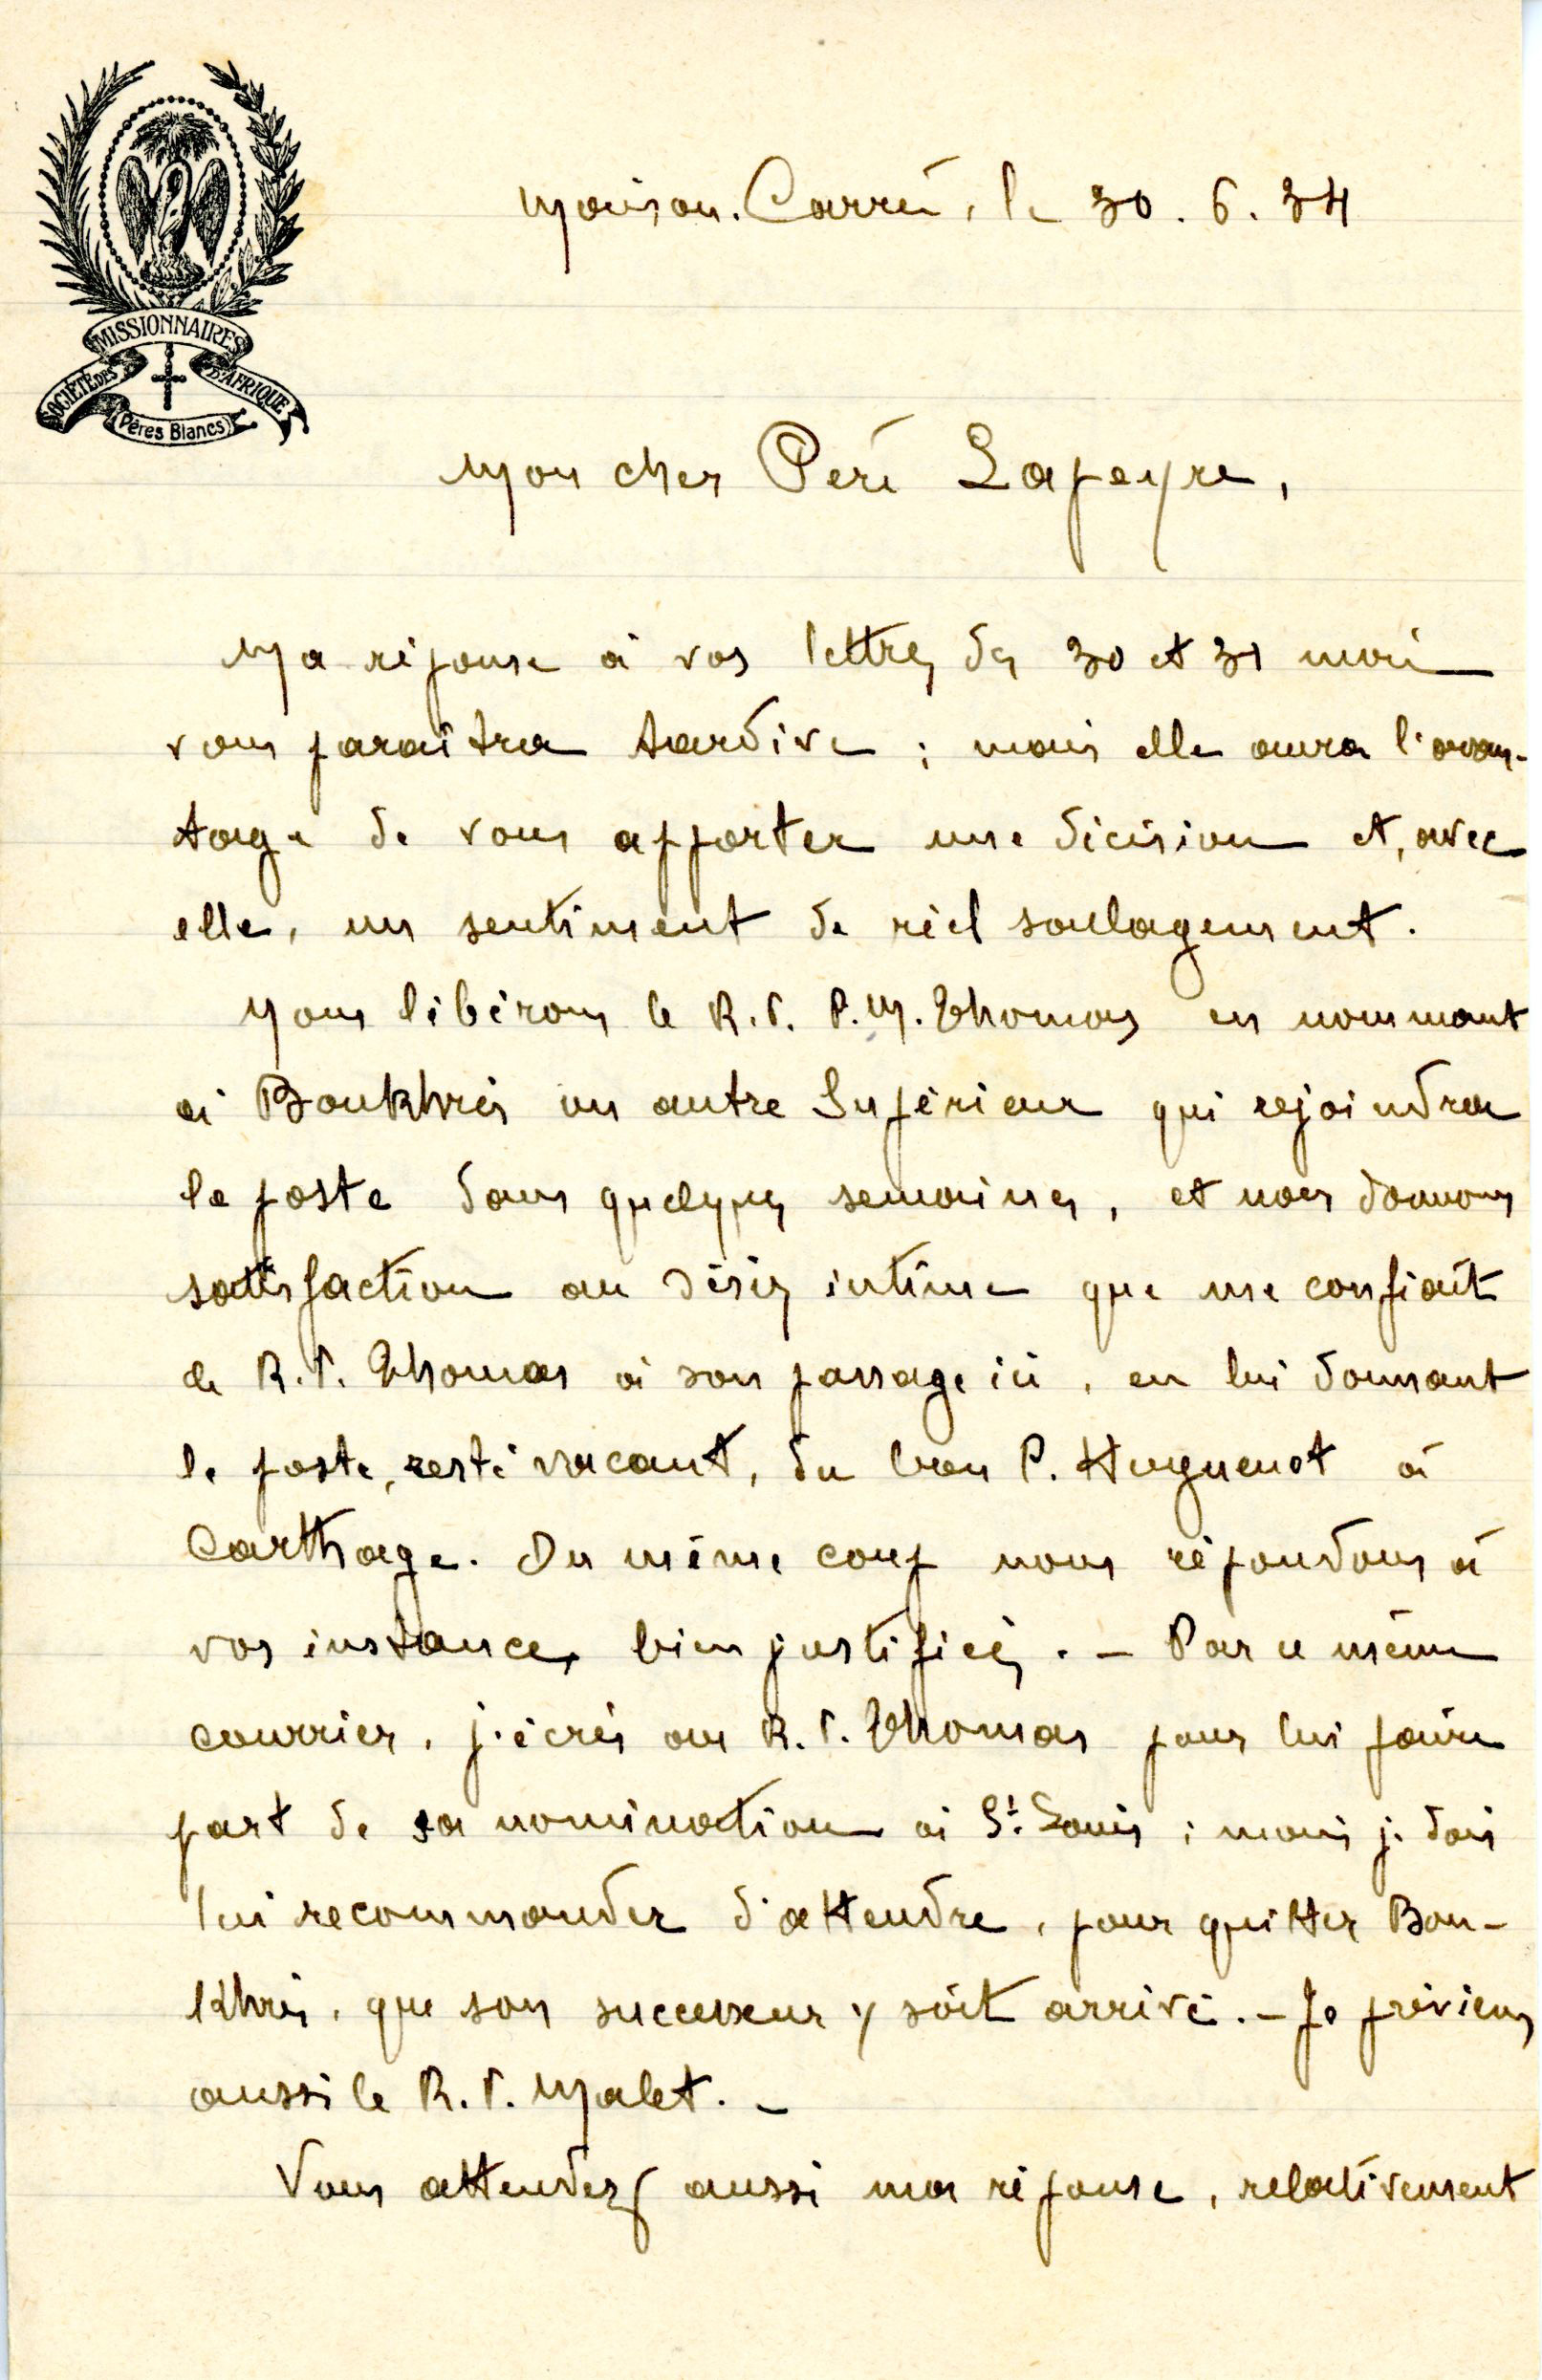 MISSIONNAIRES
SOCIÉTÉ DES D'AFRIQUE
(Pères Blancs)
Maison-Carrée, le 30.6.34
Mon cher Père Lapeyre,
Ma réponse à vos lettres des 30 et 31 mai
vous paraîtra tardive ; mais elle aura l'avan-
tage de vous apporter une décision et, avec
elle, un sentiment de réel soulagement.
Nous libérons le R.P. P.M. Thomas en nommant
à Boukhris un autre Supérieur qui rejoindra
le poste dans quelques semaines, et nous donnons
satisfaction au désir intime que me confiait
le R.P. Thomas à son passage ici, en lui donnant
le poste, resté vacant, du bon P. Huguenot à
Carthage. Du même coup nous répondons à
vos instances bien justifiées. - Par ce même
courrier, j'écris au R.P. Thomas pour lui faire
part de sa nomination à St. Louis ; mais je dois
lui recommander d'attendre, pour quitter Bou-
khris, que son successeur y soit arrivé. - Je préviens
aussi le R.P. Malet. -
Vous attendez aussi ma réponse, relativement